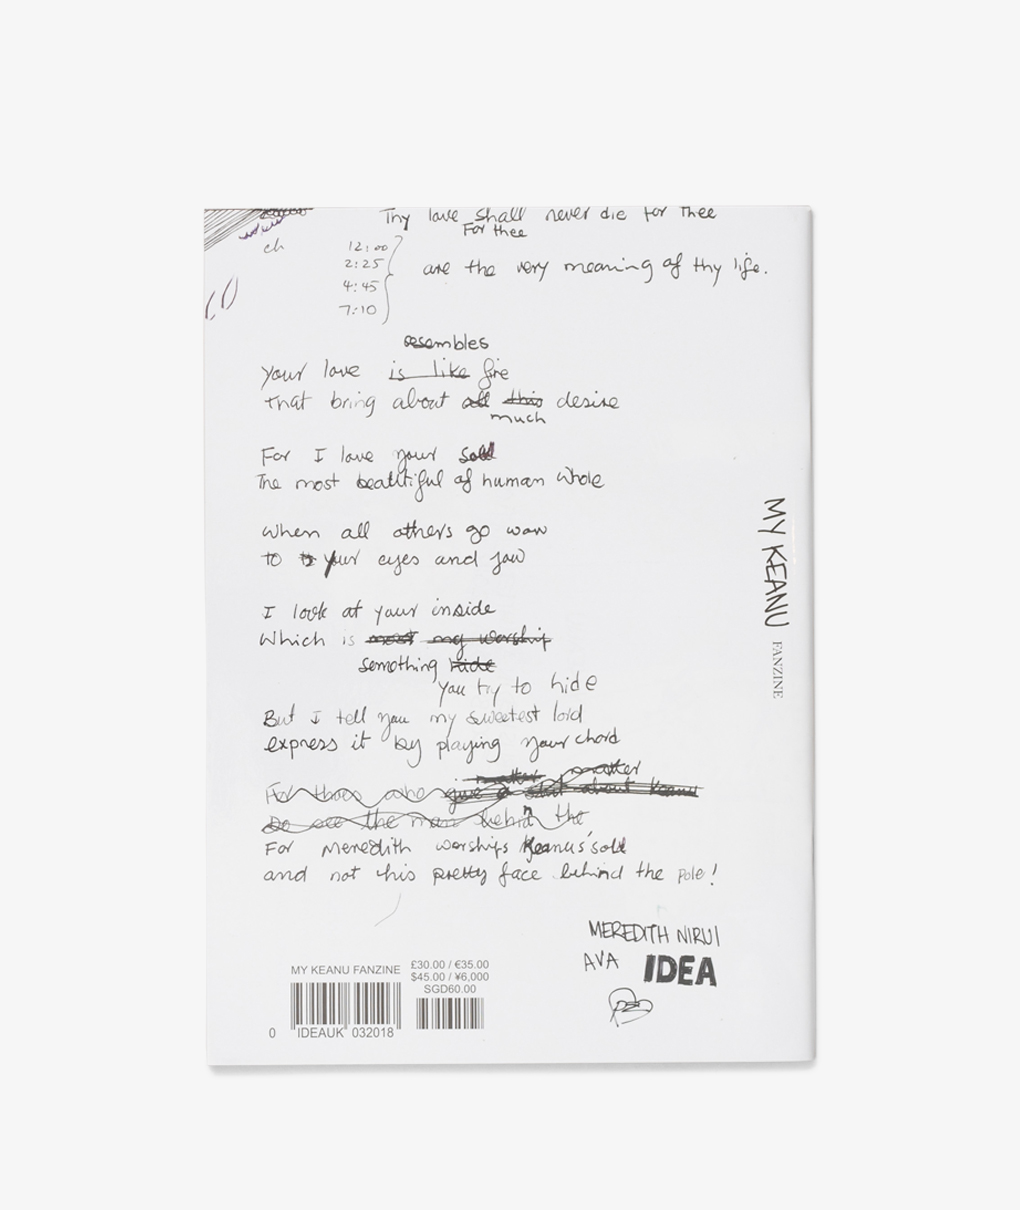 Thy love shall never die for thee
For thee
ch
12:00
2:25
4:45
7:10
are the very meaning of thy life.
resembles
Your love is like fire
that bring about all this desire
much
For I love your soul
The most beautiful of human whole
When all others go wow
to your eyes and jaw
I look at your inside
Which is most my worship
something hide
you try to hide
But I tell you my sweetest lord
express it by playing your chord
matter matter
For those who give a shit about Keanu
Do see the man behind the
For Meredith worships Keanus' soul
and not his pretty face behind the pole!
MY KEANU FANZINE
MEREDITH NIRUI
AVA IDEA
MY KEANU FANZINE
£30.00 / €35.00
$45.00 / ¥6,000
SGD60.00
0 IDEAUK 032018